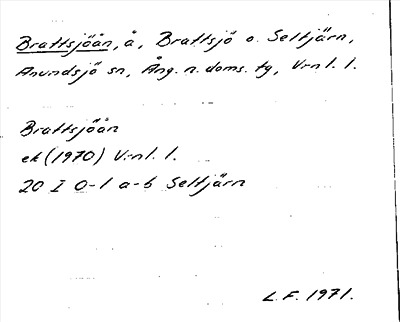 Brattsjöån, å, Brattsjö o. Seltjärn,
Anundsjö sn, Ång. n. doms. tg, Vrnl. l.
Brattsjöån
ek (1970) Vrnl. l.
20 I 0-1 a-b Seltjärn
L.F. 1971.